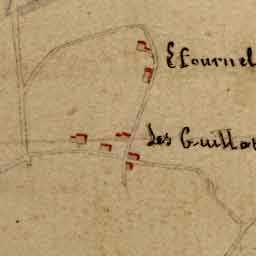 Etournel
Les Guillot